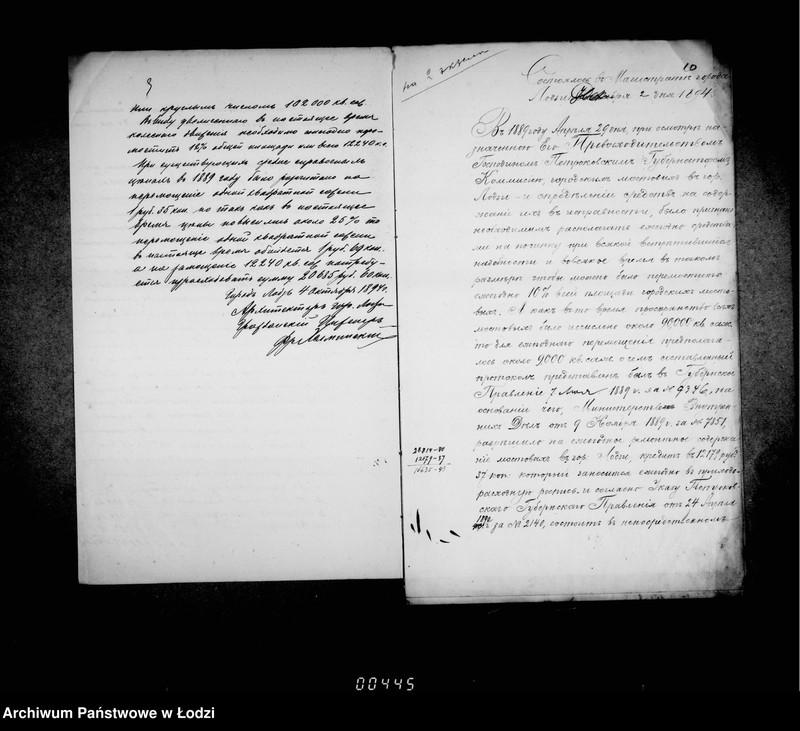 или круглымъ числомъ 102000 кв. саж.
Въ виду увеличеннаго въ настоящее время
колеснаго движенія необходимо ежегодно пере-
мостить 12% общей площади или всего 12240 кв.
При существующихъ
цѣнахъ въ 1889 году было разсчитано на
перемощеніе одной квадратной сажени
1 руб. 35 коп. но такъ какъ въ настоящее
время цѣны повысились около 25% то
перемощеніе одной квадратной сажени
въ настоящее время обойдется 1 руб. 69 коп.
а на замощеніе 12240 кв. саж. потребу-
ется израсходовать сумму 20685 руб. 60 коп.
Городъ Лодзь 4 Октября 1894 г.
Архитекторъ гор. Лодзи
Гражданскій Инженеръ
10
на 2
Состоялось въ Магистратѣ города
Лодзи 2 дня 1894.
Въ 1889 году Апрѣля 29 дня, при осмотрѣ на-
значенною Его Превосходительствомъ
Господиномъ Петроковскимъ Губернаторомъ
Коммисіею, городскихъ мостовыхъ въ гор.
Лодзи и опредѣленіи средствъ на содер-
жаніе ихъ въ исправности, было признано
необходимымъ располагать ежегодно средства-
ми на починку при всякой вступившей
надобности и во всякое время въ такомъ
размѣрѣ чтобы можно было перемостить
ежегодно 10% всей площади городскихъ мосто-
выхъ. А какъ въ то время пространство всѣхъ
мостовыхъ было исчислено около 90000 кв. саж.
то для ежегоднаго перемощенія предполага-
лось около 9000 кв. саж. о чемъ составленный
протоколъ представленъ былъ въ Губернское
Правленіе 7 Іюля 1889 г. за № 9346, на
основаніи чего, Министерство Внутрен-
нихъ Дѣлъ отъ 9 Ноября 1889 г. за № 7851,
разрѣшило на ежегодное ремонтное содержа-
ніе мостовыхъ въ гор. Лодзи, кредитъ въ 12179 руб.
37 коп. который заносится ежегодно въ приходо-
расходную роспись и согласно Указу Петроков-
скаго Губернскаго Правленія отъ 24 Апрѣля
1892 г. за № 2140, состоитъ въ непосредственномъ
12179-37
00445
Archiwum Państwowe w Łodzi